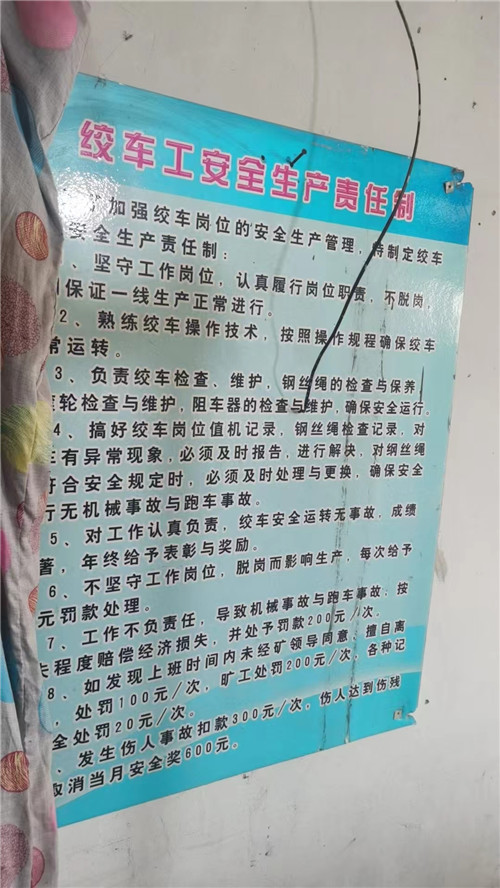 绞车工安全生产责任制
加强绞车岗位的安全生产管理，特制定绞车
安全生产责任制：
、坚守工作岗位，认真履行岗位职责，不脱岗，
保证一线生产正常进行。
2、熟练绞车操作技术，按照操作规程确保绞车
常运转。
3、负责绞车检查、维护，钢丝绳的检查与保养
轮检查与维护，阻车器的检查与维护，确保安全运行。
4、搞好绞车岗位值机记录，钢丝绳检查记录，对
有异常现象，必须及时报告，进行解决，对钢丝绳
符合安全规定时，必须及时处理与更换，确保安全
行无机械事故与跑车事故。
5、对工作认真负责，绞车安全运转无事故，成绩
著，年终给予表彰与奖励。
6、不坚守工作岗位，脱岗而影响生产，每次给予
元罚款处理。
7、工作不负责任，导致机械事故与跑车事故，按
失程度赔偿经济损失，并处予罚款200元/次。
8、如发现上班时间内未经矿领导同意，擅自离
，处罚100元/次，旷工处罚200元/次，各种记
全处罚20元/次。
、发生伤人事故扣款300元/次，伤人达到伤残
取消当月安全奖600元。